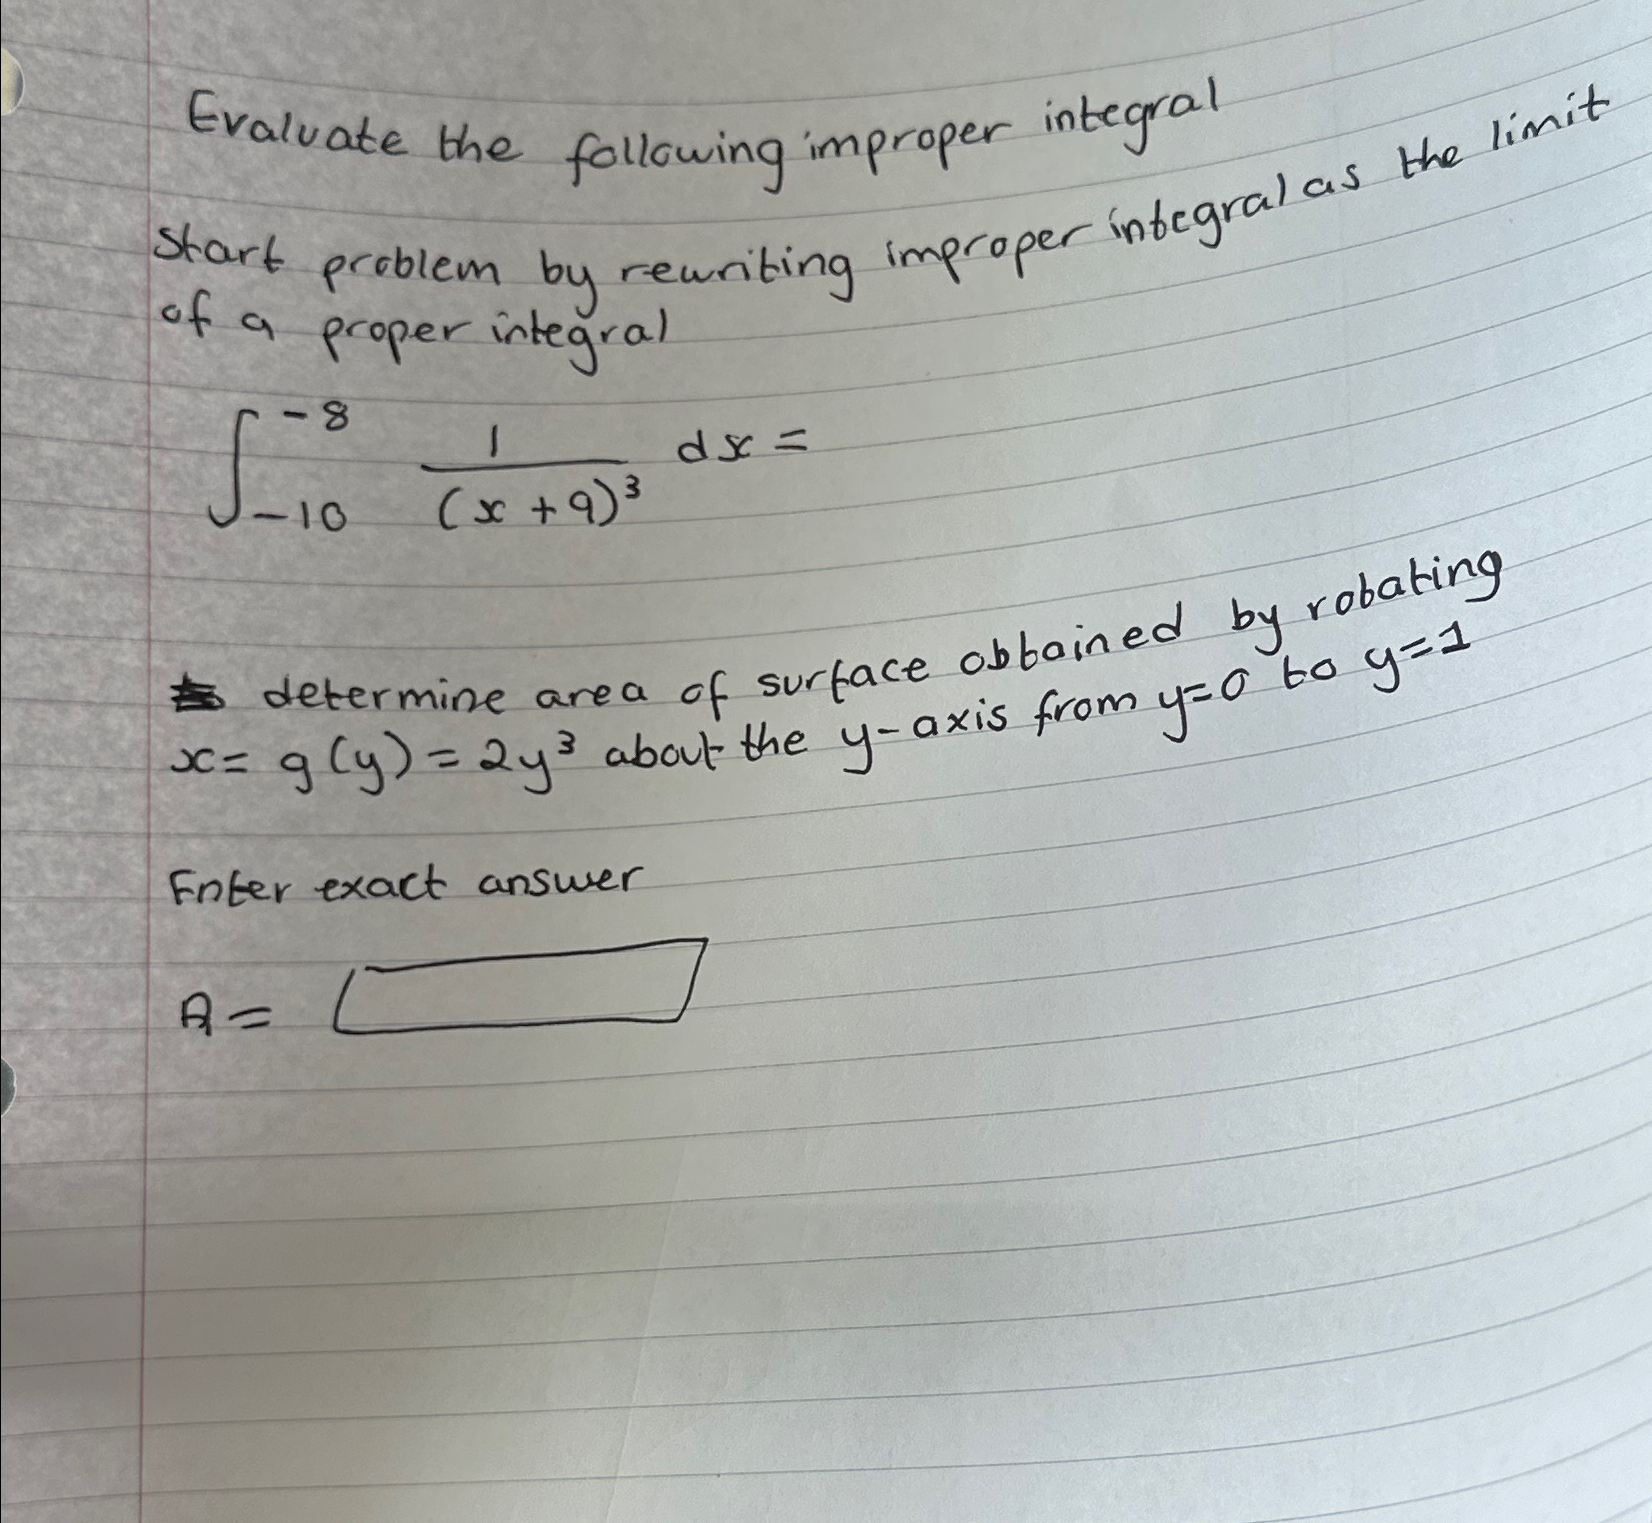 Evaluate the following improper integral
Start problem by rewriting improper integral as the limit
of a proper integral
∫_{-10}^{-8} 1/(x+9)^3 dx =
determine area of surface obtained by rotating
x = g(y) = 2y^3 about the y-axis from y=0 to y=1
Enter exact answer
A =